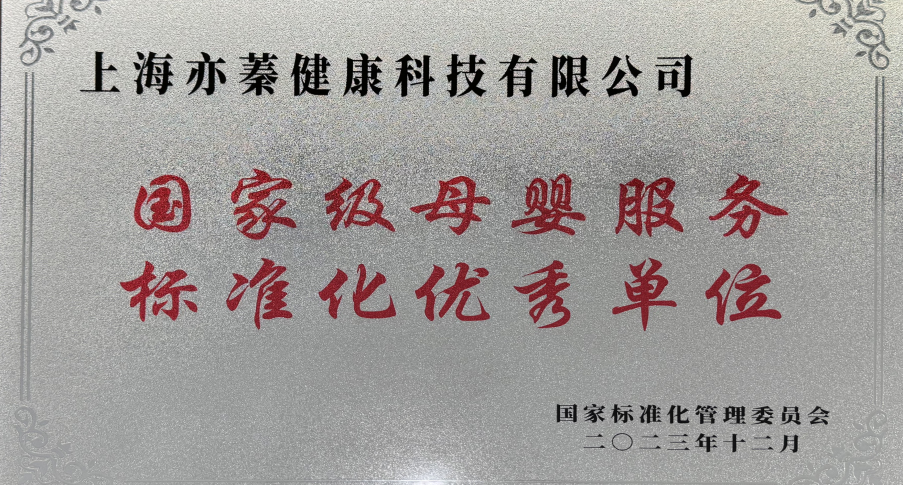 上海亦蓁健康科技有限公司
国家级母婴服务
标准化优秀单位
国家标准化管理委员会
二〇二三年十二月